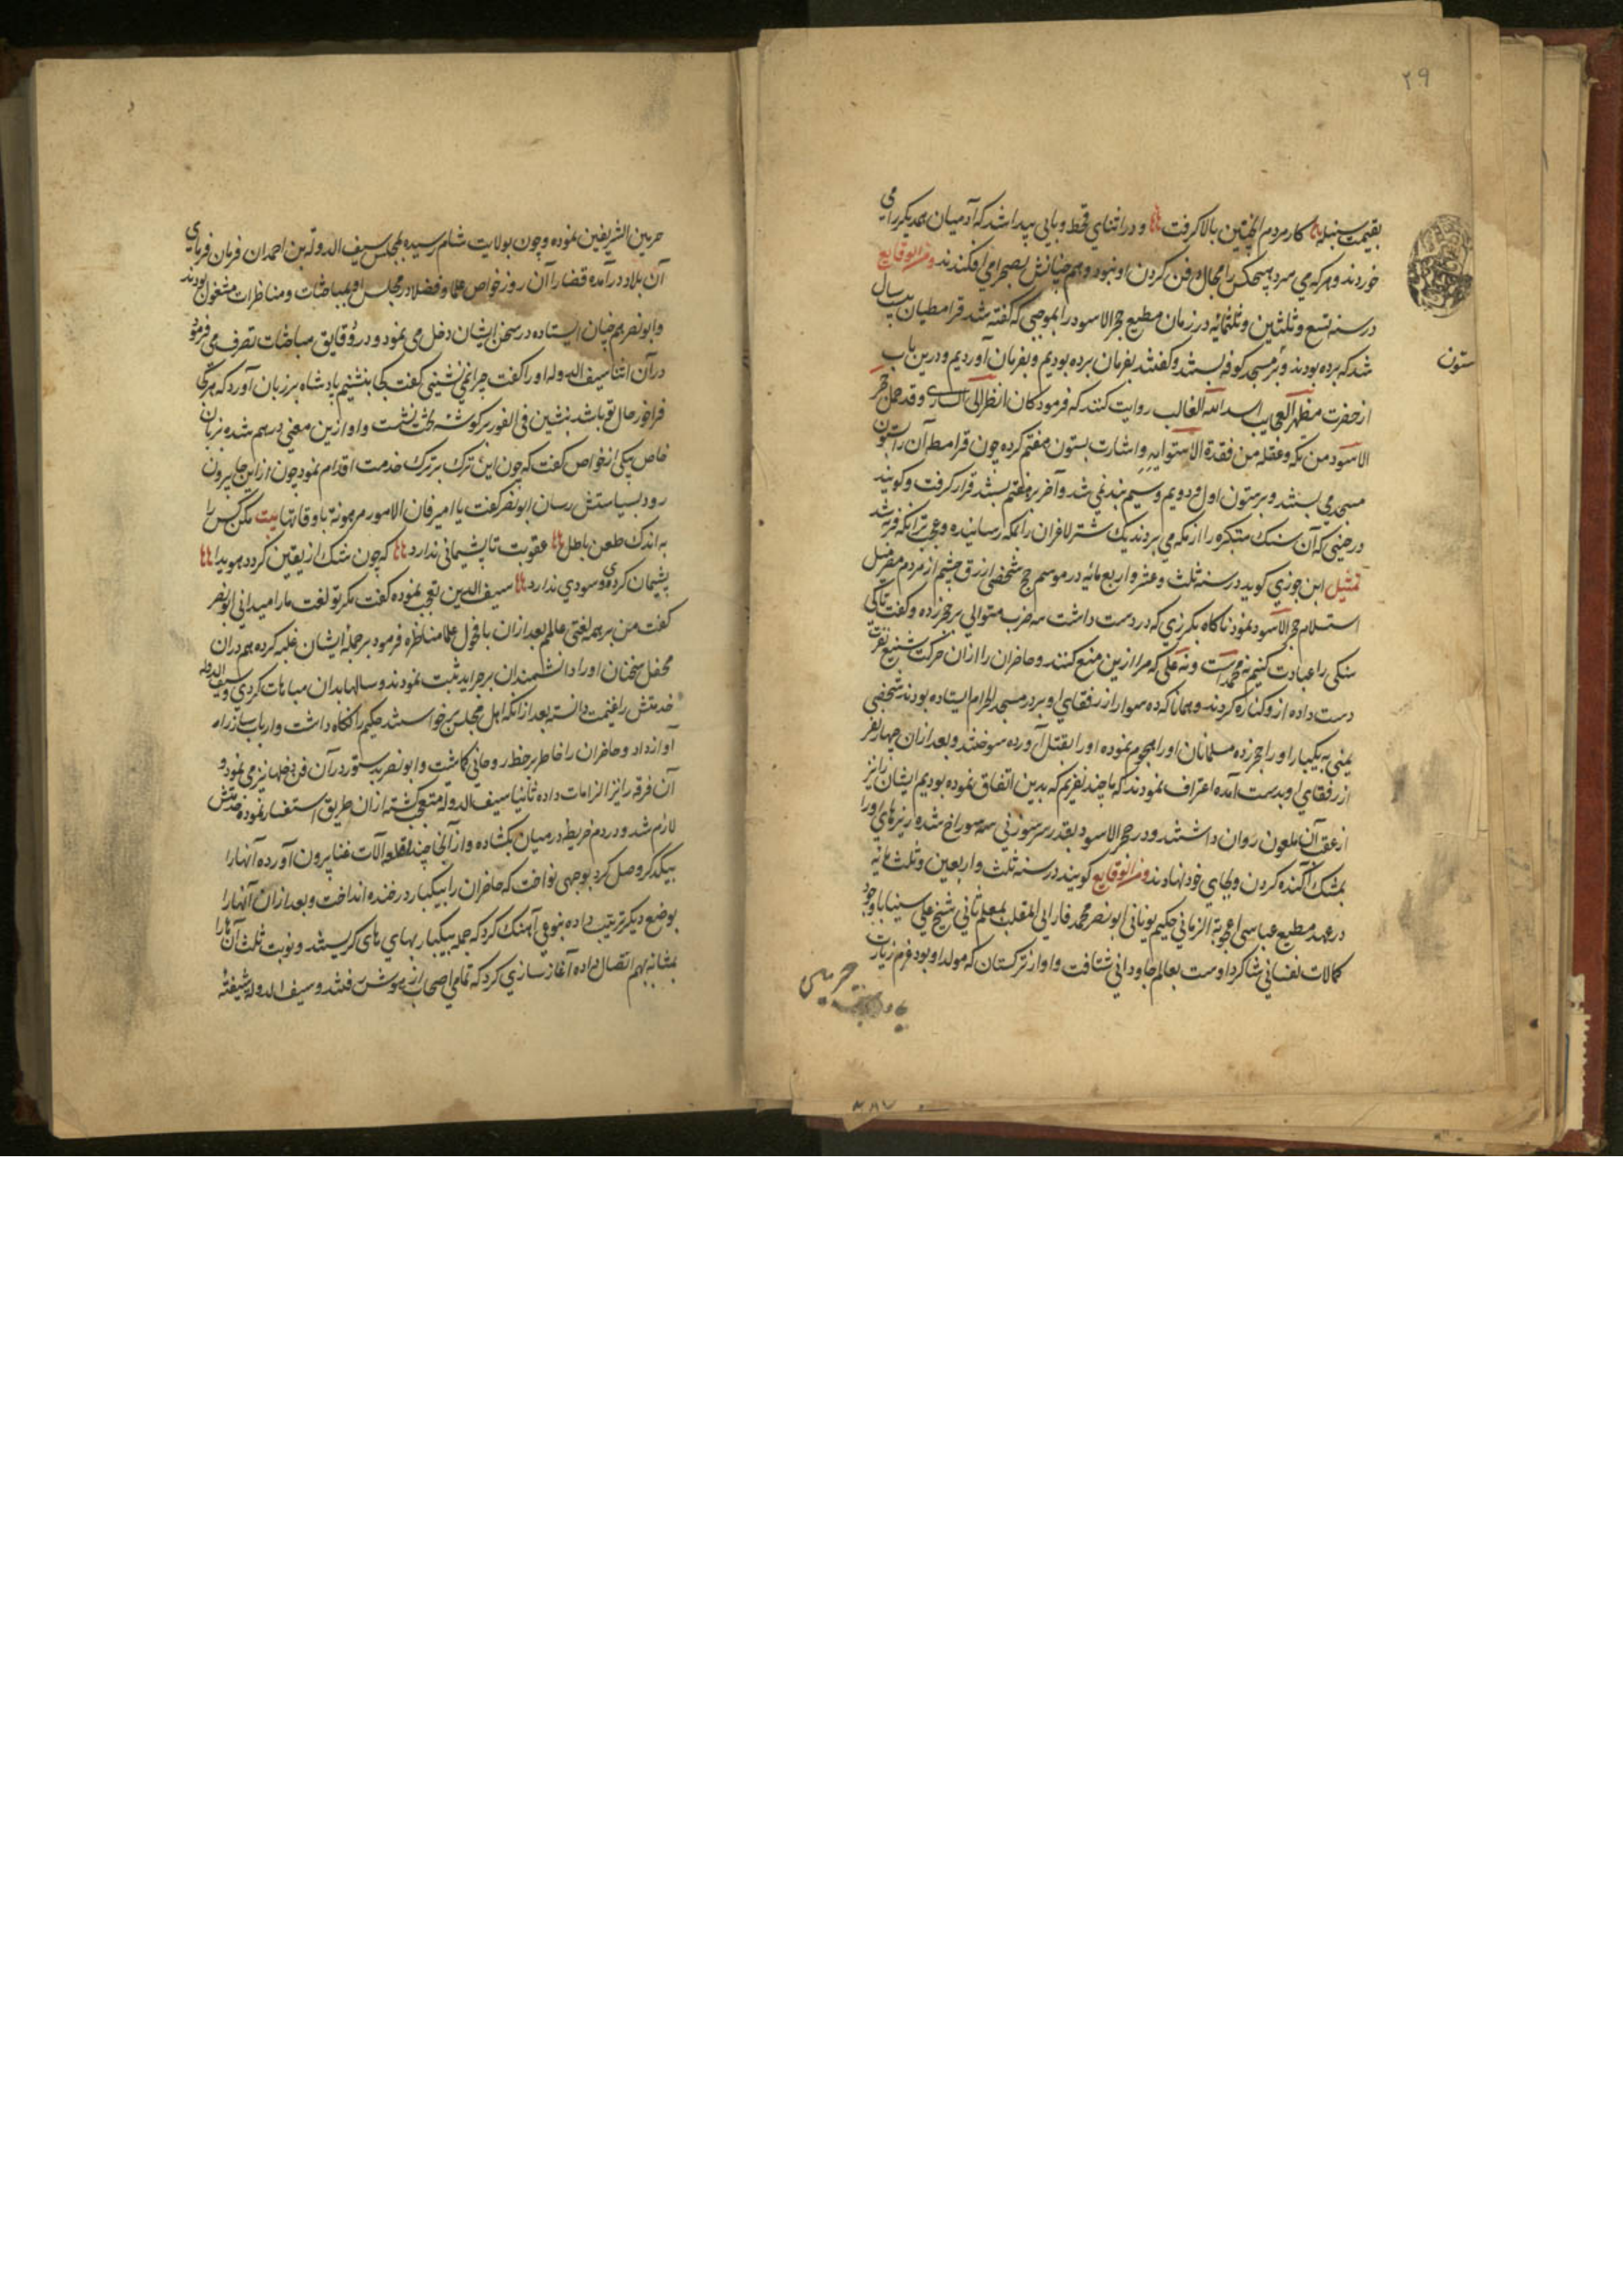 ۲۹
بقیمت سنبله کار مردم از بالا کرفت و در اثنای قحط و بایی پیدا شد که آدمیان همدیکر را می
خوردند و هرکه می مرد هیچکس را مجال دفن کردن او نبود و هم چنانش بصحرا می افکندند و من الوقایع
در سنه تسع و ثلثین و ثلثمائه در زمان مطیع حجر الاسود را بموجبی که گفته شد قرامطیان بیست سال
شد که برده بودند و بر مسجد کوفه بستند و گفتند بفرمان برده بودیم و بفرمان آوردیم و درین باب
ستون
از حضرت مظهر العجایب اسد الله الغالب روایت کنند که فرمود کان انظر الی الساری و قد حمل حجر
الاسود من مکه و عقله من فقدة الاستوایه و اشارت بستون هفتم کرده چون قرامطه آن را بستون
مسجد می بستند و بر ستون اول و دویم و سیم بند نمی شد و آخر بر هفتم بستند قرار کرفت و کویند
در حینی که آن سنک متبرکه را از مکه می بردند یک شتر لاغر آن را بمکه رسانیده و عجب تر آنکه فربه شد
تمثیل ابن جوزی کوید در سنه ثلث و عشر و اربعمائه در موسم حج شخصی ازرق چشم از مردم مصر میل
استلام حجر الاسود نمود ناکاه بکرزی که در دست داشت سه ضرب متوالی بر حجر زده و گفت تا کی
سنکی را عبادت کنیم نه محمد است و نه علی که مرا ازین منع کنند و حاضران را ازان حرکت شنیع نفرت
دست داده ازو کناره کردند و همانا که ده سوار از رفقای او بر در مسجد الحرام ایستاده بودند شخصی
یمنی به یکبار او را حجر زده مسلمانان او را هجوم نموده او را بقتل آورده سوختند و بعد ازان چهار نفر
از رفقای او بدست آمده اعتراف نمودند که ما چند نفریم که بدین اتفاق نموده بودیم ایشان را نیز
از عقب آن ملعون روان داشتند و در حجر الاسود بقدر سر سوزنی سه سوراخ شده ریزهای او را
بمشک آکنده کردن و بجای خود نهادند و من الوقایع کویند در سنه ثلث و اربعین و ثلث مائه
در عهد مطیع عباسی اعجوبة الزمانی حکیم یونانی ابو نصر محمد فارابی الملقب بمعلم ثانی شیخ علی سینا با وجود
کمالات نفسانی شاکرد اوست بعالم جاودانی شتافت و او از ترکستان که مولد او بود عزم زیارت
حرمین
حرمین الشریفین نموده و چون بولایت شام رسیده بمجلس سیف الدوله بن احمدان فرمان فرمای
آن بلاد در آمده قضا را آن روز خواص علما و فضلا در مجلس او بمباحثات و مناظرات مشغول بودند
و ابو نصر هم چنان ایستاده در سخن ایشان دخل می نمود و در دقایق مباحثات تصرف می فرمود
در آن اثنا سیف الدوله او را گفت چرا نمی نشینی گفت کجا بنشینم پادشاه بر زبان آورد که هر کجا
فراخور حال تو باشد بنشین فی الفور بر کوشه تخت نشست و او ازین معنی درهم شده بزبان
خاص بیکی از خواص گفت که چون این ترک بر ترک خدمت اقدام نمود چون از این جا بیرون
رود بسیاستش رسان ابو نصر گفت یا امیر فان الامور مرهونة باوقاتها بیت مکن کس را
به اندک طعن باطل عقوبت تا پشیمانی ندارد که چون شک از یقین کردد هویدا
پشیمان کردی و سودی ندارد سیف الدین تعجب نموده گفت مکر تو لغت ما را میدانی ابو نصر
گفت من بر همه لغتی عالمم بعد ازان با فحول علما مناظره فرمود بر جمله ایشان غلبه کرده هم دران
محفل سخنان او را دانشمندان بر جراید ثبت نمودند و سالها بدان مباهات کردی و سیف الدوله
خدمتش را غنیمت دانسته بعد ازانکه اهل مجلس برخواستند حکیم را نکاه داشت و ارباب ساز را در
آواز داد و حاضران را خاطر بر حظ روحانی کماشت و ابو نصر بدستور در آن فن دخلها نیز می نمود و
آن فرقه را نیز الزامات داده ثانیا سیف الدوله متعجب کشته ازان طریق استفسار نموده خدمتش
لازم شد و در دم خریطه در میان بکشاده و از آنجا چند قطعه آلات غنا بیرون آورده آنها را
بیکدکر وصل کرد بوجهی نواخت که حاضران را بیکبار در خنده انداخت و بعد ازان آنها را
بوضع دیکر ترتیب داده بنوعی آهنک کرد که جمله بیکبار بهای های کریستند و نوبت ثلث آن ها را
بمثابه بهم اتصال داده آغاز سازی کرد که تمامی اصحاب از هوش رفتند و سیف الدوله شیفته